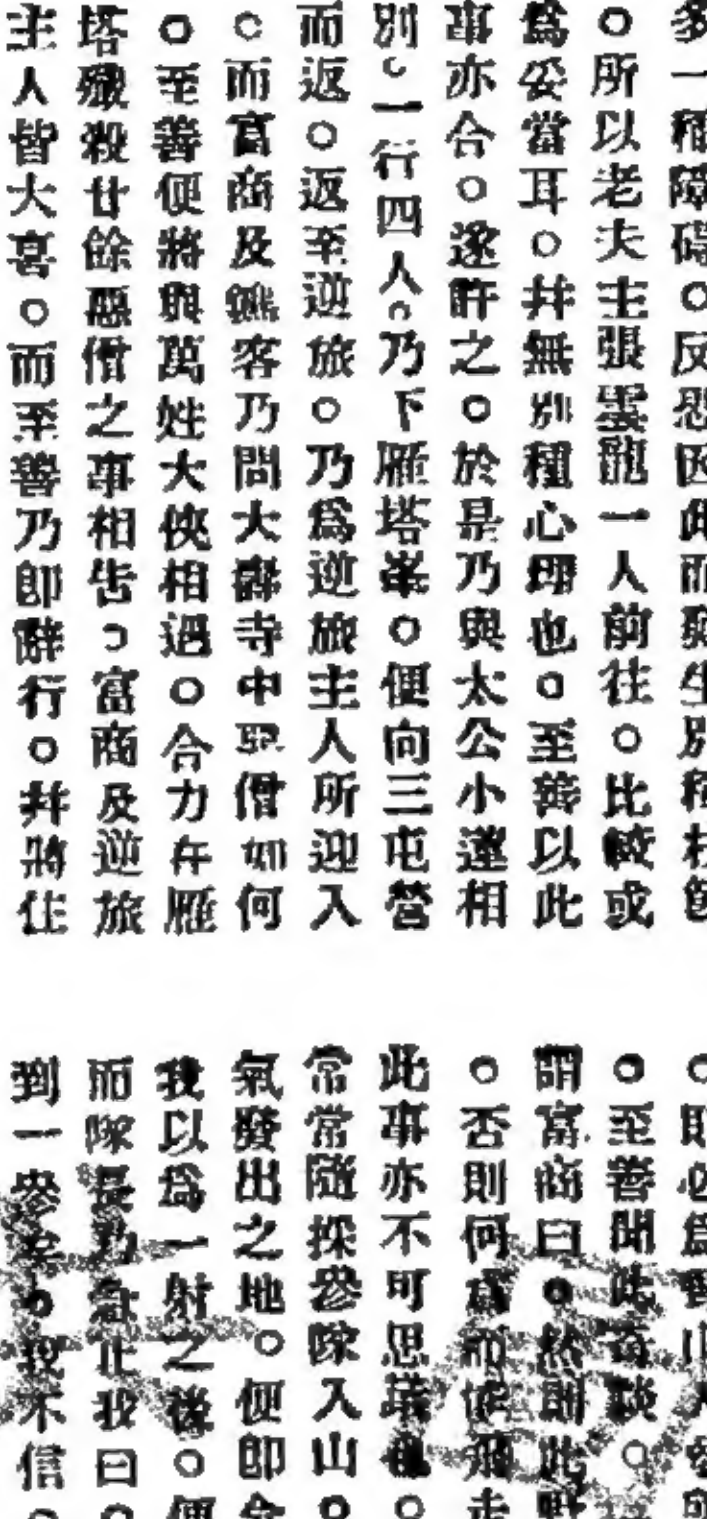 多一種障碍。反恐因此而發生別種枝節
。所以老夫主張雲龍一人前往。比較或
爲妥當耳。幷無別種心理也。至善以此
事亦合。遂許之。於是乃與太公小蓮相
別。一行四人。乃下雁塔峯。便向三屯營
而返。返至逆旅。乃爲逆旅主人所迎入
。而富商及樵客乃問大壽寺中惡僧如何
。至善便將與萬姓大俠相遇。合力在雁
塔殲殺廿餘惡僧之事相吿。富商及逆旅
主人皆大喜。而至善乃卽辭行。幷將住
。至善聞此奇談。
謂富商曰。然則此
。否則何爲而能飛走
此事亦不可思議也。
常常隨採參隊入山。
氣發出之地。便卽
我以爲一射之後。便
而隊長乃急止我曰。
到一參 我不信。